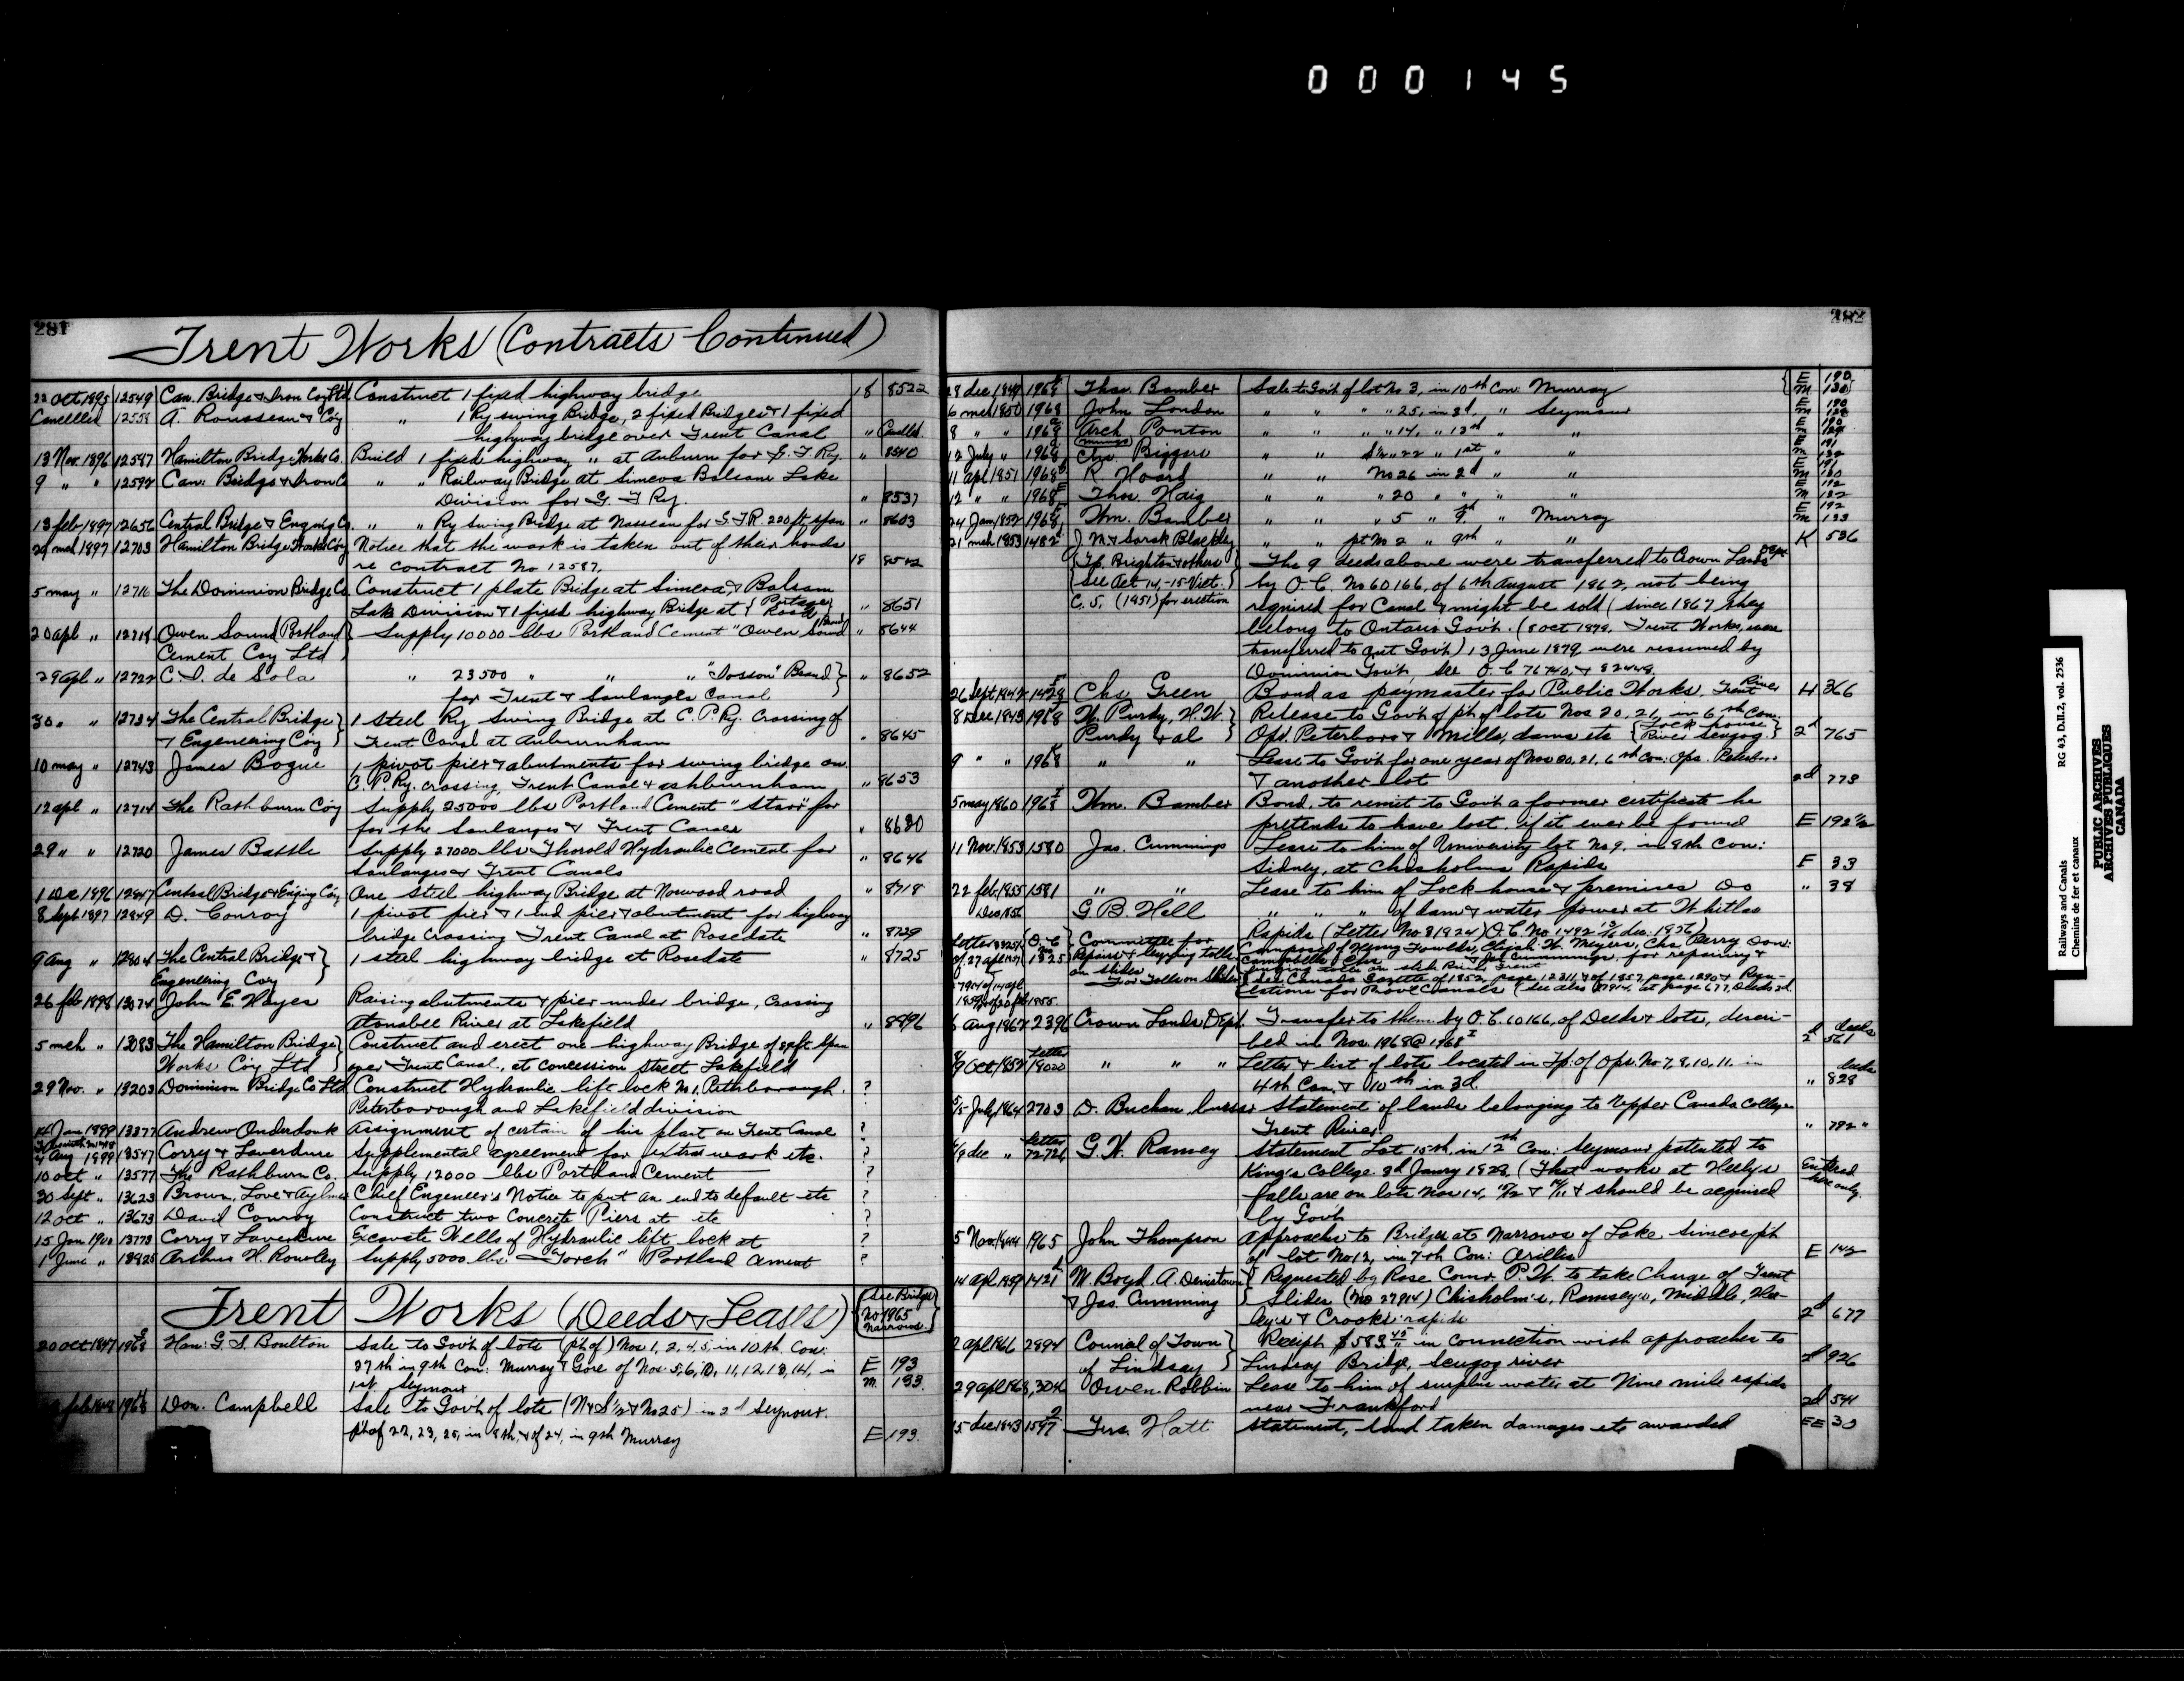 000145
281
Trent Works (Contracts Continued)
22 Oct 1895 12549 Can. Bridge & Iron Coy Ltd Construct 1 fixed highway bridge 18 8522
Cancelled 12558 A. Rousseau & Coy " 1 Ry swing Bridge, 2 fixed Bridges & 1 fixed
highway bridge over Trent Canal " Cancelled
13 Nov. 1896 12587 Hamilton Bridge Works Co. Build 1 fixed highway " at Auburn for G. T. Ry. " 8540
9 " " 12592 Can: Bridge & Iron C " " Railway Bridge at Simcoe Balsam Lake
Division for G. T Ry. " 8537
13 feb 1897 12656 Central Bridge & Enging Co. " " Ry Swing Bridge at Nassau for G.T.R. 220 ft span " 8603
29 mch 1897 12703 Hamilton Bridge Works Coy Notice that the work is taken out of their hands
re contract No 12587. 18 8542
5 may " 12716 The Dominion Bridge Co Construct 1 plate Bridge at Simcoe & Balsam
Lake Division & 1 fixed highway Bridge at { Portage Road } " 8651
20 apl " 12718 Owen Sound Portland } Supply 10000 lbs Portland Cement "Owen Sound Brand " 8644
Cement Coy Ltd
29 apl " 12722 C. I. de Sola " 23500 " " " "Josson" Brand } " 8652
for Trent & Soulanges Canal
30 " " 12734 The Central Bridge } 1 Steel Ry Swing Bridge at C. P. Ry. Crossing of
& Engeneering Coy } Trent Canal at Auburnham " 8645
10 may " 12743 James Bogue 1 pivot pier & abutments for swing bridge on
C. P. Ry. crossing, Trent Canal & ashburnham " 8653
12 apl " 12714 The Rathburn Coy Supply 25000 lbs Portland Cement "Star" for
for the Soulanges & Trent Canals " 8620
29 " " 12720 James Battle Supply 27000 lbs Thorold Hydraulic Cement for
Soulanges & Trent Canals " 8646
1 Dec 1896 12847 Central Bridge & Enging Coy One steel highway Bridge at Norwood road " 8718
8 Sept 1897 12849 D. Conroy 1 pivot pier & 1 end pier & abutment for highway
bridge crossing Trent Canal at Rosedale " 8729
9 Aug " 12804 The Central Bridge & } 1 steel highway bridge at Rosedale " 8725
Engeneering Coy
26 feb 1898 13074 John E. Hayes Raising abutments & pier under bridge, crossing
Otonabee River at Lakefield " 8896
5 mch " 13083 The Hamilton Bridge } Construct and erect one highway Bridge of 89 ft span
Works Coy Ltd } over Trent Canal, at concession street Lakefield
29 Nov. " 13203 Dominion Bridge Co Ltd Construct Hydraulic lift lock No 1, Peterborough. ?
Peterborough and Lakefield division
14 June 1899 13377 Andrew Onderdonk Assignment of certain of his plant on Trent Canal ?
4 Aug 1899 13547 Corry & Laverdure Supplemental agreement for extra work etc. ?
10 oct " 13577 The Rathburn Co. Supply 12000 lbs Portland Cement ?
30 Sept " 13623 Brown, Love & Aylmer Chief Engineer's Notice to put an end to default etc ?
12 oct " 13673 David Conroy Construct two Concrete Piers at etc ?
15 Jan 1900 13773 Corry & Laverdure Excavate Wells of Hydraulic lift lock at ?
1 June " 13925 Arthur H. Rowley Supply 5000 lbs "Torch" Portland Cement ?
Trent Works (Deeds & Leases) See Bridge No 1965 Narrows
20 oct 1847 1968 Hon: G. S. Boulton Sale to Gov't of lots (pt of) Nos 1, 2, 4, 5, in 10th. Con:
27th in 9th Con: Murray & Gore of Nos. 5, 6, 10, 11, 12, 13, 14, in E 193
1st Seymour m. 133.
feb 1848 1968 Don. Campbell Sale to Gov't of lots (N & S ½ & No 25) in 2d Seymour.
pt of 22, 23, 25, in 8th, & of 24, in 9th Murray E 193.
282
28 dec 1849 1968 Thos. Bamber Sale to Gov't of lot No 3, in 10th Con: Murray { E 190 m 130
6 mch 1850 1968 John London " " " " 25, in 3d, " Seymour E 190 m
8 " " 1968 Arch. Ponton " " " " 14, " 13th " " E 190 m
12 July " 1968 Chs. Biggars " " S ½ " 22 " 1st " " E 191 m 132
11 apl 1851 1968 R Hoard " " No 26 in 2d " " E 191 m 130
12 " " 1968 Thos. Haig " " " 20 " " " " E 192 m 132
24 Jan 1852 1968 Wm. Bamber " " " 5 " 9th " Murray E 192 m 133
21 mch 1853 1482 J. M & Sarah Bleakley " " pt No 2 " 9th " " K 536
(Tp. Brighton & others } The 9 deeds above were transferred to Crown Lands Dept
See Act 14-15 Vict. by O. C. No 60166, of 6th August 1862, not being
C. 5, (1851) for erection required for Canal & might be sold (since 1867 they
belong to Ontario Gov't. (8 oct 1878, Trent Works, were
transferred to Ont Gov't) 13 June 1879 were resumed by
Dominion Gov't, see O. C 76740, & 82448.
26 Sept 1842 1428 Chs. Green Bond as paymaster for Public Works, Trent River H 366
8 Dec 1843 1968 W. Purdy, H. W. } Release to Gov't of pt of lots Nos 20, 21, in 6th Con:
Purdy & al } Ops. Peterboro & Mills, dams etc { Lock house River Scugog. } 2d 765
9 " " 1968 " " Lease to Gov't for one year of Nos 20, 21, 6th Con: Ops. Peterboro
& another lot 2d 773
5 may 1860 1968 Wm. Bamber Bond, to remit to Gov't a former certificate he
pretends to have lost, if it ever be found E 192 ½
11 Nov. 1853 1580 Jas. Cummings Lease to him of University lot No 9, in 8th Con:
Sidney, at Chisholms Rapids E 33
22 feb 1855 1581 " " Lease to him of Lock house & premises Do " 38
Dec 1856 G. B. Hall " " " of dam & water power at Whitlas
Rapids (Letter No 31924) O. C. No 1492 dec: 1856)
Committee for
Repairs & levying tolls
on slides
For Tolls on Slides
6 Aug 1862 2396 Crown Lands Dept. Transfer to them by O. C. 60166, of Deeds & lots, descri-
bed in Nos. 1968 @ 1968 I 2d deeds 561
9 Oct. 1852 Letter 19020 " " " Letter & list of lots located in Tp: of Ops. No 7, 9, 10, 11. in
4th Con. & 10th in 3d. " deeds 828
5 July 1864 2703 D. Buchan, bursar Statement of lands belonging to Upper Canada College
Trent River. " 792 "
9 dec " letter 72724 G. W. Ramsey Statement Lot 15th, in 12th Con: Seymour patented to
King's College 3d Janry 1828. (That works at Heely's Entered
falls are on lots Nos 14, & should be acquired here only.
by Gov't
5 Nov. 1844 1965 John Thompson Approaches to Bridges at Narrows of Lake Simcoe, pt
of lot No 12, in 7th Con: Orillia E 142
14 apl 1859 1421 W. Boyd, A. Denistown } Requested by Rose Comr. P. W. to take Charge of Trent
& Jas. Cumming } Slides (No 27914) Chisholm's, Ramsey's, Middle, Hea-
ley's & Crooks rapids 2d 677
2 apl 1866 2894 Council of Town } Receipt $583 45 in connection with approaches to
of Lindsay } Lindsay Bridge, Scugog river 2d 926
29 apl 1868 3046 Owen Robbin Lease to him of surplus water at Nine mile rapids
near Frankford 2d 544
15 dec 1843 1597 Jas. Hatt Statement, land taken damages etc awarded EE 30
Railways and Canals RG 43, D.II.2, vol. 2536
Chemins de fer et canaux
PUBLIC ARCHIVES
ARCHIVES PUBLIQUES
CANADA